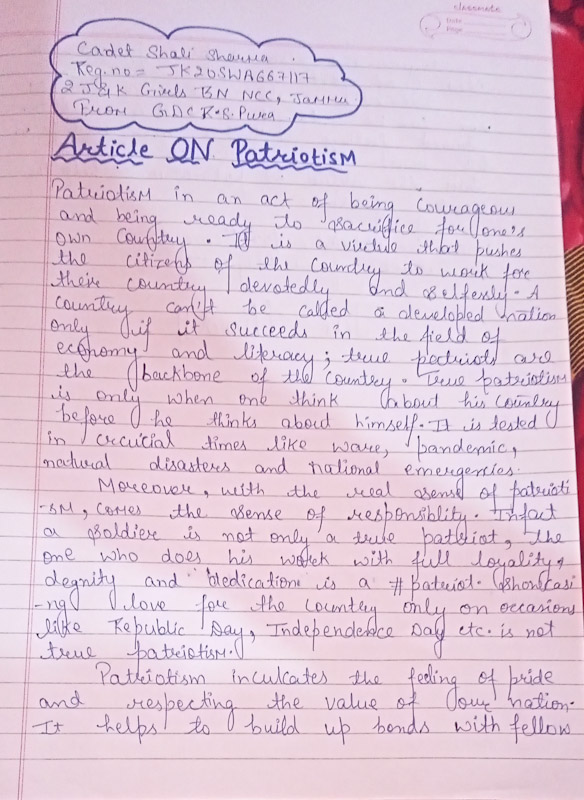 classmate
Date
Page
Cadet Shali Sharma
Reg.no = JK20SWA667117
2 J&K Girls BN NCC, Jammu
From GDC R.S. Pura
Article ON PatriotisM
PatriotisM in an act of being Courageous
and being ready to sacrifice for one's
own Country. It is a virtue that pushes
the citizens of the Country to work for
their country devotedly and selflessly. A
country can't be called a developed nation
only if it succeeds in the field of
economy and literacy; true patriots are
the backbone of the Country. True patriotism
is only when one think about his Country
before he thinks about himself. It is tested
in crcucial times like ware, pandemic,
natural disasters and national emergencies.
Moreover, with the real sense of patrioti
-sM, comes the sense of responsiblity. Infact
a soldier is not only a true patriot, the
one who does his work with full loyality,
degnity and dedication is a patriot. Showcasi
-ng love for the country only on occasions
like Republic Day, Independence Day etc. is not
true patriotism.
Patriotism inculcates the feeling of pride
and respecting the value of our nation.
It helps to build up bonds with fellow